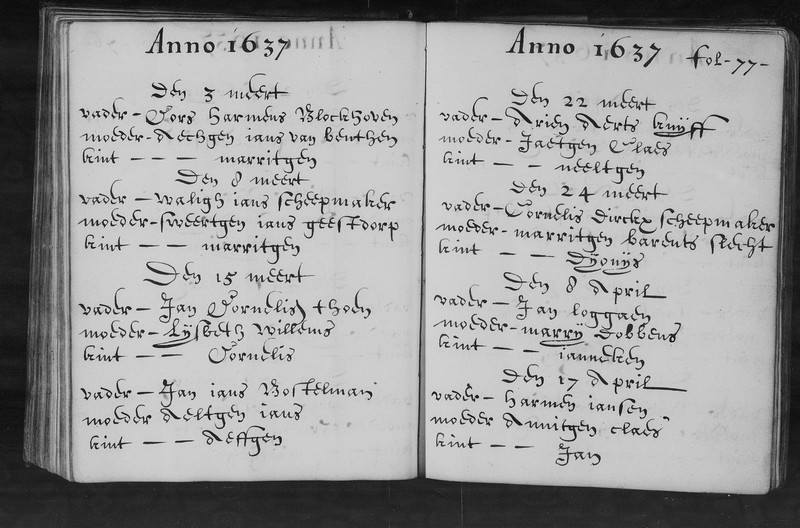 Anno 1637
Den 3 meert
vader - Cors Harmens Blockhoven
moeder - Aechgen ians van benthen
kint - - - marritgen
Den 8 meert
vader - waligh ians scheepmaker
moeder - sweertgen ians geestdorp
kint - - marritgen
Den 15 meert
vader - Jan Cornelis thoen
moeder - Lysbeth Willems
kint - - Cornelis
vader - Jan ians Bostelman
moeder Aeltgen ians
kint - - - Aeffgen
Anno 1637 fol - 77 -
Den 22 meert
vader - Arien Aerts knyff
moeder - Jaetgen Claes
kint - - neeltgen
Den 24 meert
vader - Cornelis Dirckx scheepmaker
moeder - marritgen barents slecht
kint - - Dyonys
Den 8 April
vader - Jan loggaen
moeder - marry Dobbens
kint - - ianneken
Den 17 April
vader - Harmen iansen
moeder Annitgen claes
kint - - Jan